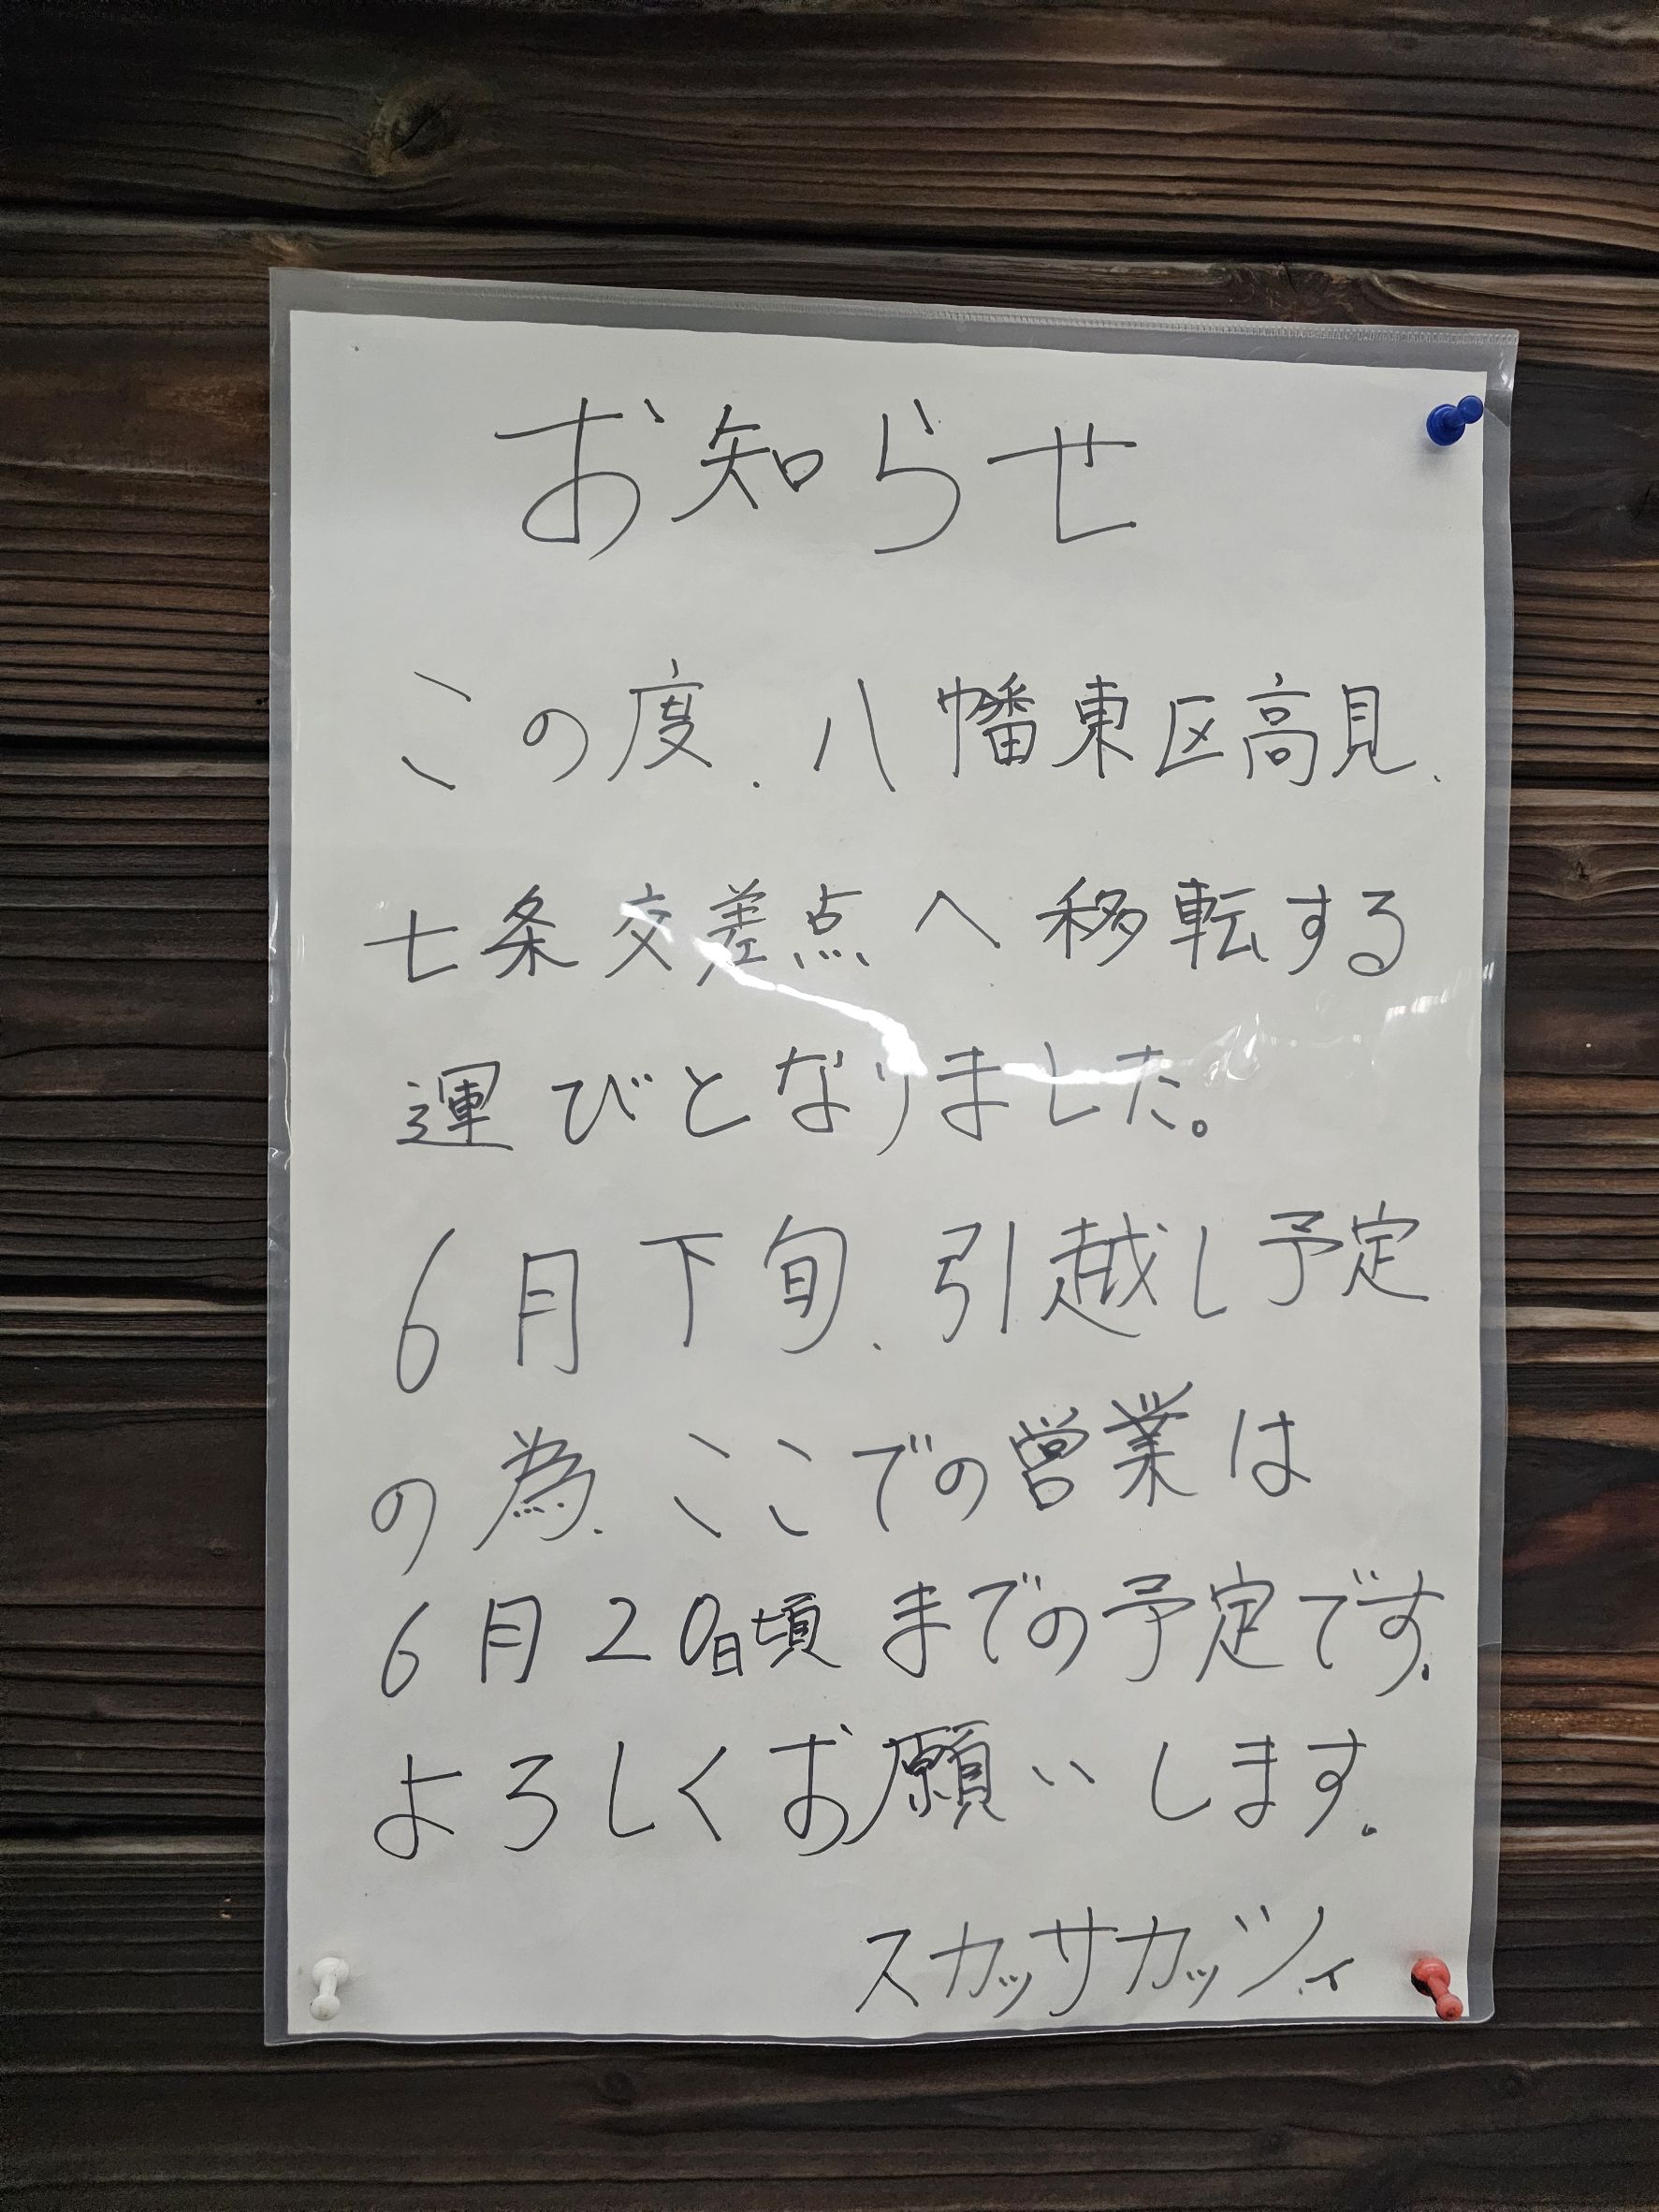 お知らせ
この度、八幡東区高見、
七条交差点へ移転する
運びとなりました。
6月下旬、引越し予定
の為、ここでの営業は
6月20日頃までの予定です。
よろしくお願いします。
スカッサカッツィ